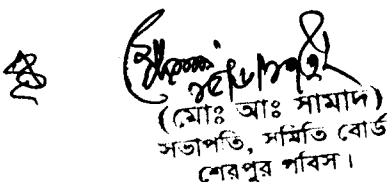 (মোঃ আঃ সামাদ)
সভাপতি, সমিতি বোর্ড
শেরপুর পবিস।